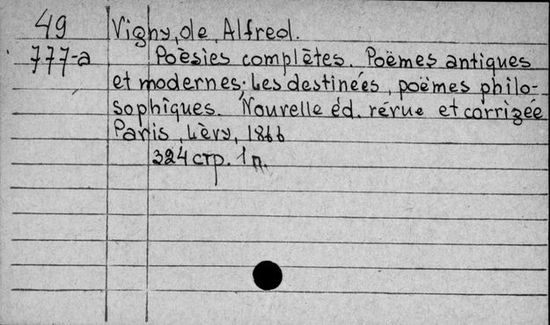 49 Vigny, de, Alfred.
777-a Poèsies complètes. Poëmes antiques
et modernes. Les destinées, poëmes philo-
sophiques. Nouvelle éd. révue et corrigée
Paris, Lèvy, 1866
324 стр. 1 п.